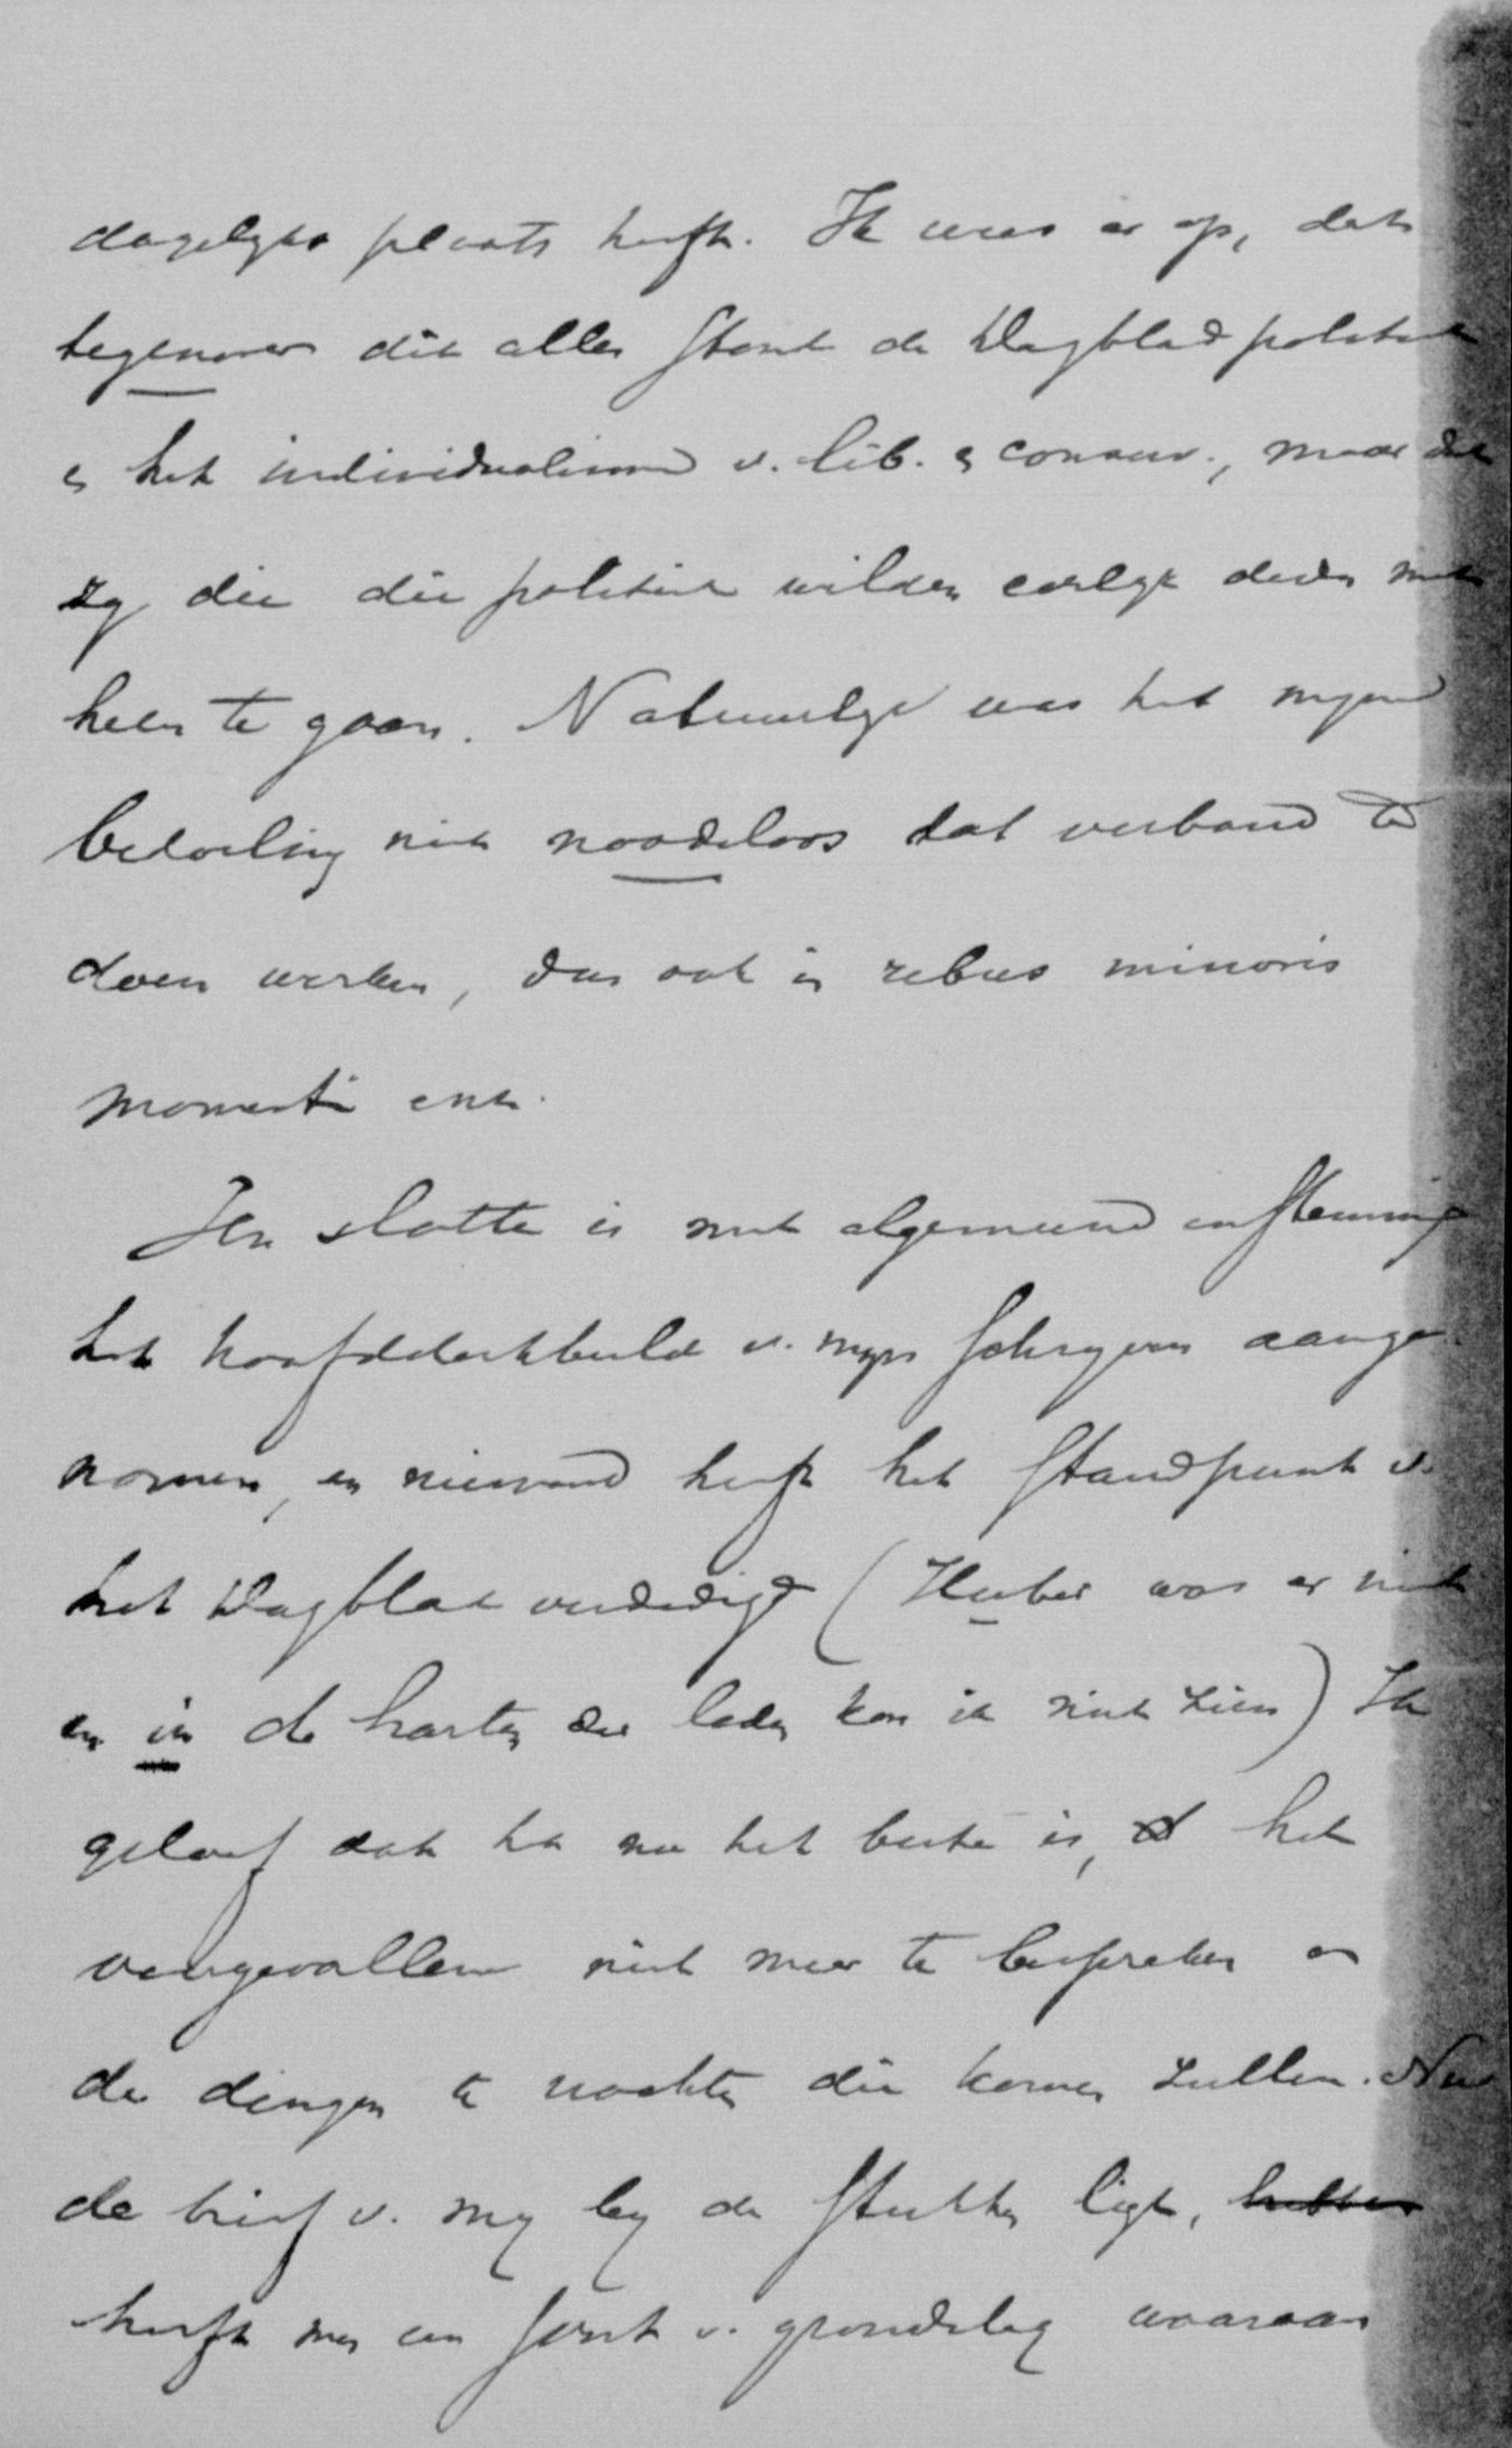 dagelyks plaats heeft. Ik wees er op, dat
tegenover dit alles stond de Dagblad politiek
en het individualisme v. lib. en conserv., maar dat
zy die die politiek wilden eerlyk deden met
heen te gaan. Natuurlyk was het myne
bedoeling niet noodeloos dat verband te
doen werken, dus ook in rebus minoris
momenti enz.
Ten slotte is met algemeene instemming
het hoofddenkbeeld v. myn schryven aange-
nomen, en niemand heeft het standpunt v.
het Dagblad verdedigd (Huber was er niet
en in de harten der leden kon ik niet zien) Ik
geloof dat het nu het beste is, het
voorgevallene niet meer te bespreken en
de dingen te wachten die komen zullen. Nu
de brief v. my by de stukken ligt, hebben
heeft men een soort v. grondslag waaraan